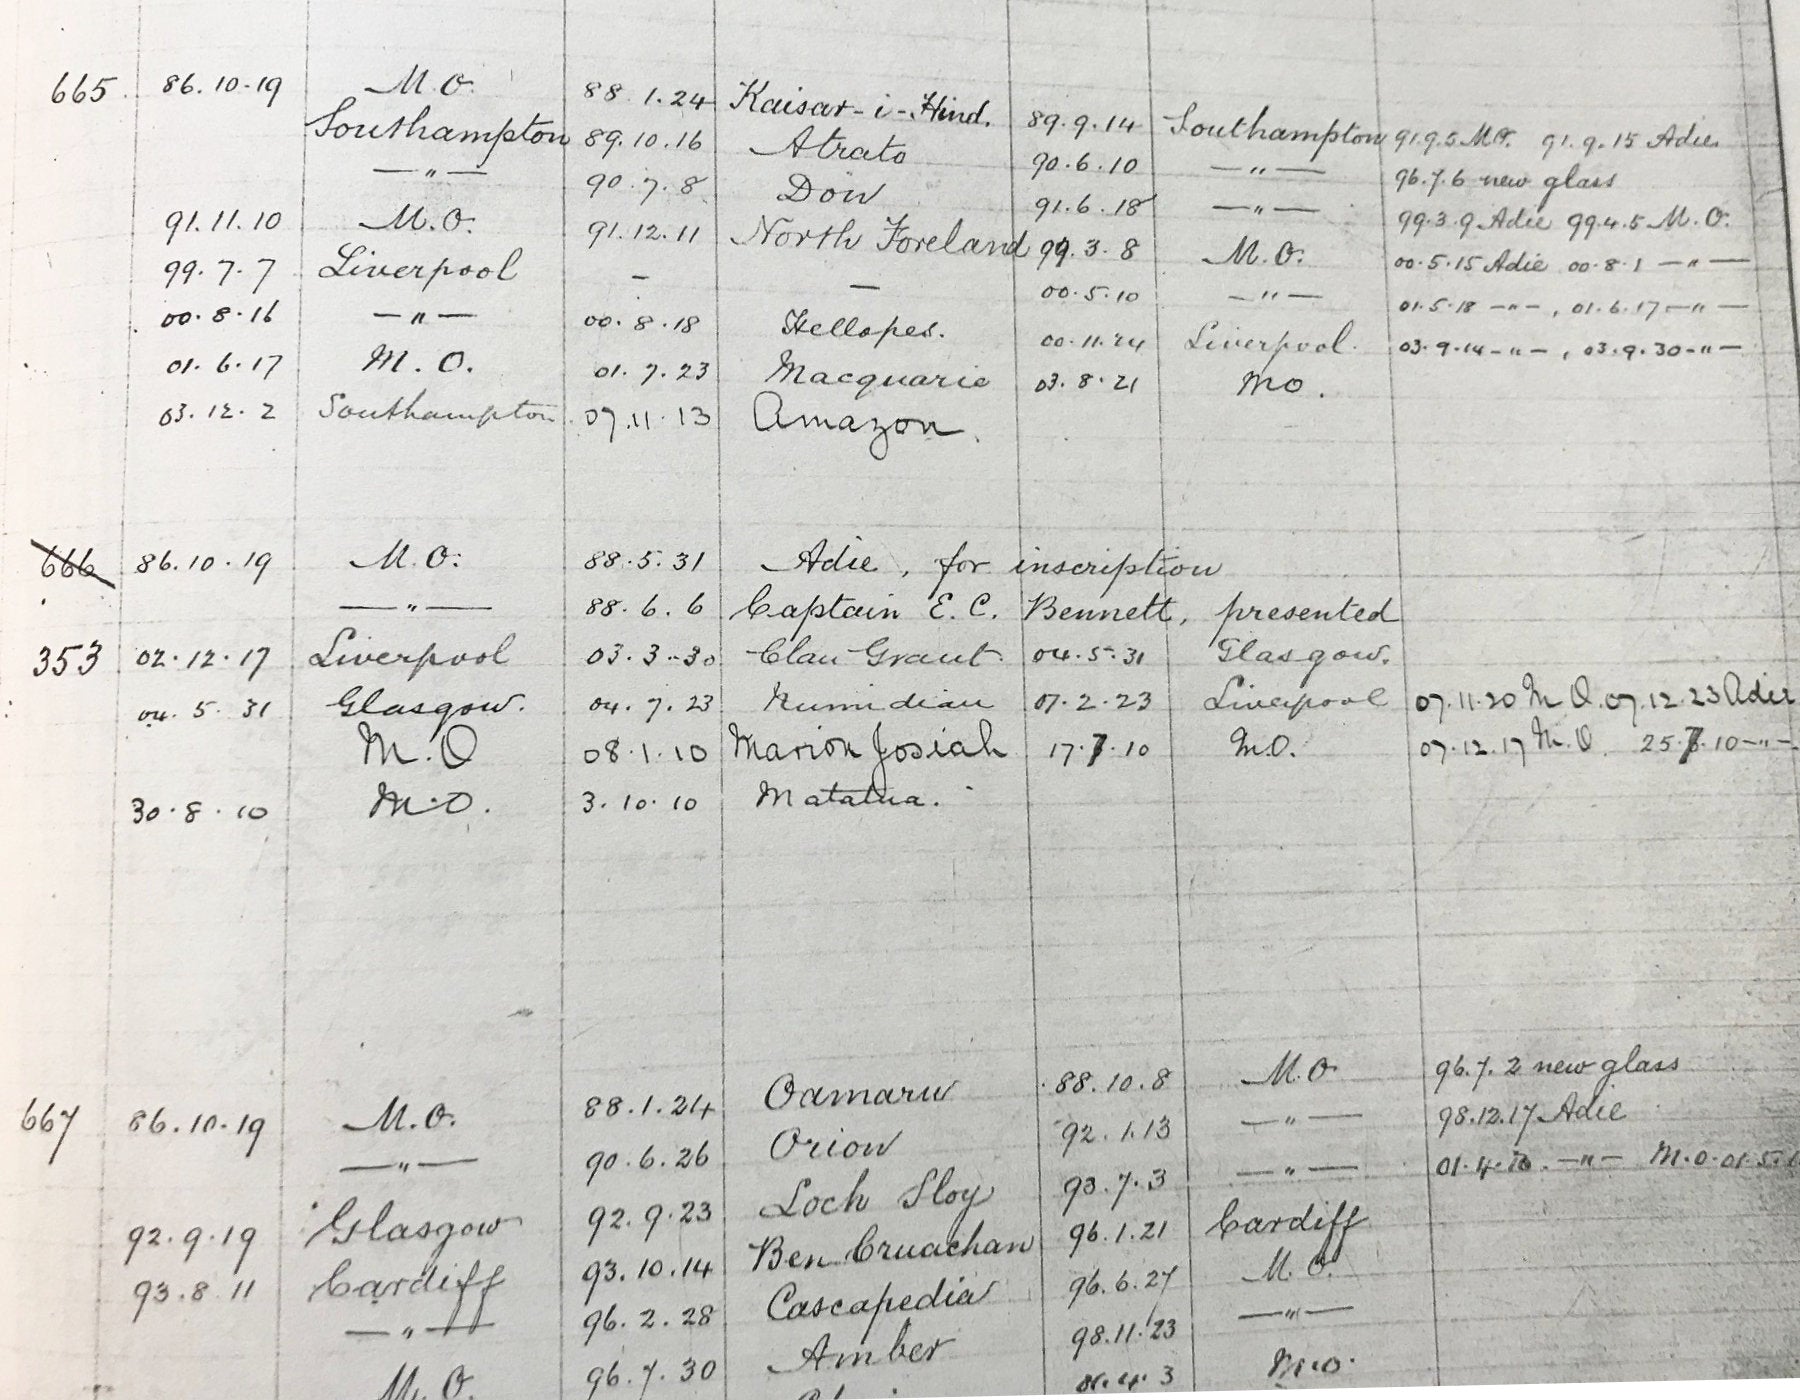 665 86.10.19 M.O. 88.1.24 Kaisar-i-Hind. 89.9.14 Southampton 91.9.5 M.O. 91.9.15 Adie
Southampton 89.10.16 Atrato 90.6.10 —"— 96.7.6 new glass
—"— 90.7.8 Don 91.6.18 —"— 99.3.9 Adie 99.4.5 M.O.
91.11.10 M.O. 91.12.11 North Foreland 99.3.8 M.O. 00.5.15 Adie 00.8.1 —"—
99.7.7 Liverpool — — 00.5.10 —"— 01.5.18 —"—, 01.6.17 —"—
00.8.16 —"— 00.8.18 Hellopes. 00.11.24 Liverpool. 03.9.14 —"—, 03.9.30 —"—
01.6.17 M.O. 01.7.23 Macquarie 03.8.21 MO.
03.12.2 Southampton 07.11.13 Amazon.
666 86.10.19 M.O. 88.5.31 Adie, for inscription
—"— 88.6.6 Captain E. C. Bennett, presented
353 02.12.17 Liverpool 03.3.30 Clan Grant 04.5.31 Glasgow.
04.5.31 Glasgow. 04.7.23 Numidian 07.2.23 Liverpool 07.11.20 M.O. 07.12.23 Adie
M.O 08.1.10 Marion Josiah 17.7.10 M.O. 07.12.17 M.O. 25.7.10 —"—
30.8.10 M.O. 3.10.10 Matatua.
667 86.10.19 M.O. 88.1.24 Oamaru 88.10.8 M.O. 96.7.2 new glass
—"— 90.6.26 Orion 92.1.13 —"— 98.12.17 Adie
92.9.19 Glasgow 92.9.23 Loch Sloy 93.7.3 —"— 01.4. —"— M.O. 01.5.
93.8.11 Cardiff 93.10.14 Ben Cruachan 96.1.21 Cardiff
—"— 96.2.28 Cascapedia 96.6.27 M.O.
M.O. 96.7.30 Amber 98.11.23 —"—
4.3 M.O.